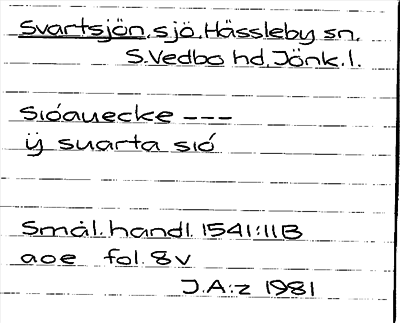 Svartsjön, sjö, Hässleby sn.
S. Vedbo hd, Jönk. l.
Sióauecke ---
ÿ suarta sió
Smål. handl. 1541:11B
aoe fol. 8v
J.A:z 1981